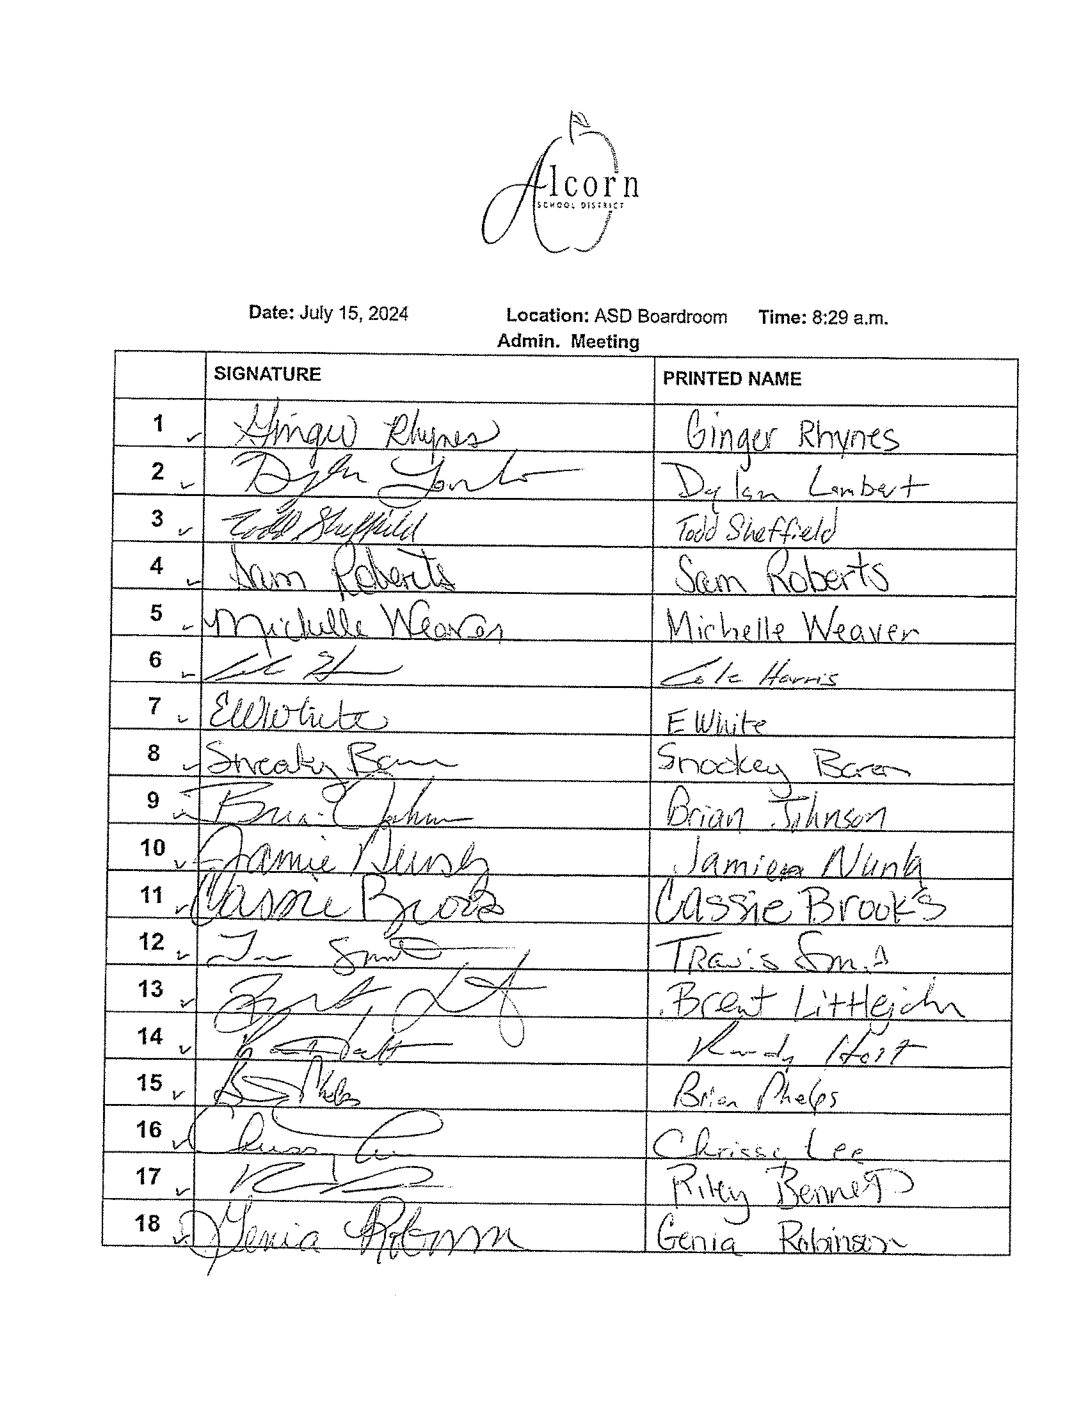 Alcorn
SCHOOL DISTRICT
Date: July 15, 2024 Location: ASD Boardroom Time: 8:29 a.m.
Admin. Meeting
SIGNATURE PRINTED NAME
1 Ginger Rhynes Ginger Rhynes
2 Dylan Lambert Dylan Lambert
3 Todd Sheffield Todd Sheffield
4 Sam Roberts Sam Roberts
5 Michelle Weaver Michelle Weaver
6 Cole Harris
7 EWWhite E White
8
9 Brian Johnson Brian Johnson
10 Jamie
11 Cassie Brooks Cassie Brooks
12 Travis
13 Brent Littlejohn
14 Randy
15 Brian Phelps Brian Phelps
16 Lee
17 Riley Bennett
18 Genia Robinson Genia Robinson